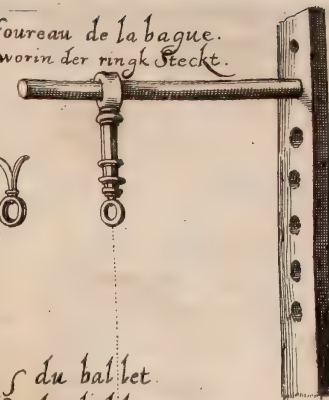 foureau de la bague.
worin der ringk Steckt.
du ballet